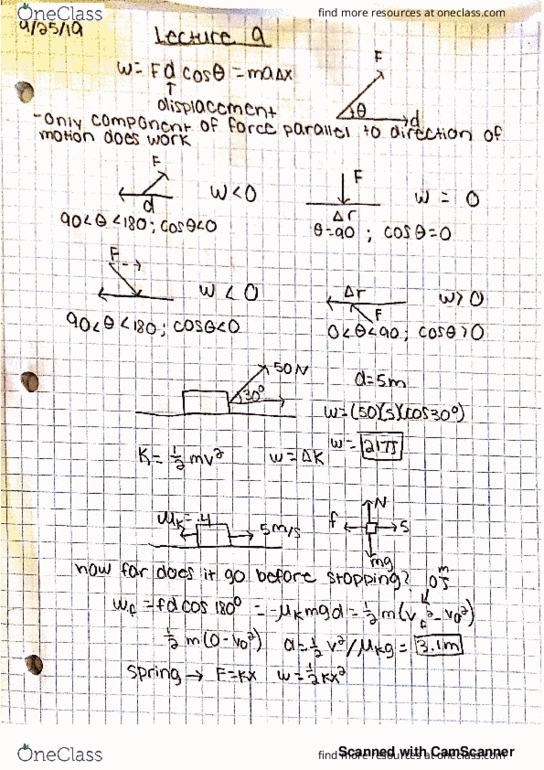 OneClass
find more resources at oneclass.com
9/25/19
Lecture 9
w = Fd cosθ = maΔx
↑
displacement
F
θ
d
-only component of force parallel to direction of
motion does work
F
d
w<0
90<θ<180; cosθ<0
F
Δr
w = 0
θ=90 ; cosθ=0
F
w<0
90<θ<180; cosθ<0
Δr
F
w>0
0<θ<90; cosθ>0
50N
30°
d=5m
w=(50)(5)(cos30°)
w= 217J
K= ½mv²
w=ΔK
μk=.4
5m/s
N
f
S
mg
how far does it go before stopping?
wf = fd cos 180° = -μkmgd = ½m(vf²-v0²)
½m(0-v0²)
d=½v²/μkg = 3.1m
spring → F=kx w=½kx²
OneClass
find more resources at oneclass.com
Scanned with CamScanner